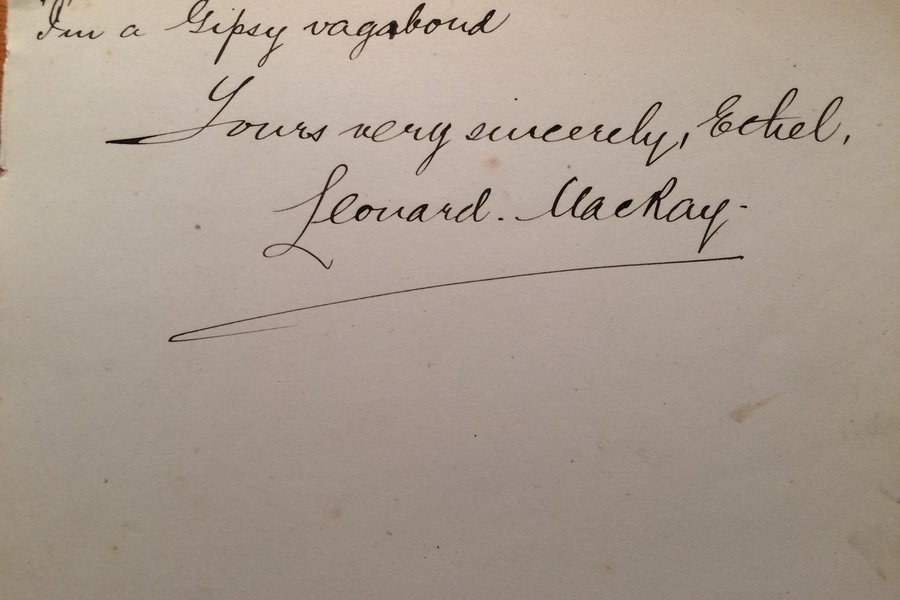 "I'm a Gipsy vagabond
Yours very sincerely, Ethel,
Leonard. MacKay-